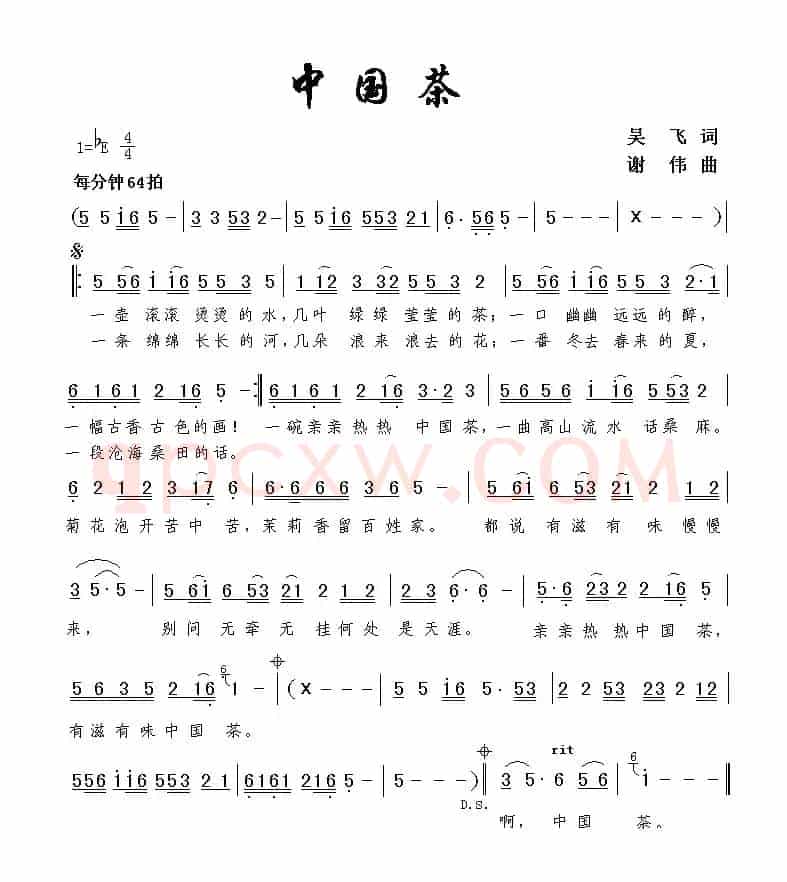 中国茶
1=♭E 4/4
吴 飞 词
谢 伟 曲
每分钟64拍
(5 5 i6 5 - | 3 3 53 2 - | 5 5 i6 553 21 | 6· 56 5 - | 5 - - - | X - - ) |
5 56 i i6 55 3 5 | 1 12 3 32 55 3 2 | 5 56 i i6 55 3 2·1 |
一壶 滚滚 烫烫的水,几叶 绿绿 莹莹的茶;一口 幽幽 远远的醉,
一条 绵绵 长长的河,几朵 浪来 浪去的花;一番 冬去 春来的夏,
6 161 2 16 5 - :| 6 161 2 16 3·2 3 | 5 65 6 i6 5 53 2 |
一幅古香古色的画! 一碗亲亲热热 中国茶,一曲高山流水 话桑麻。
一段沧海桑田的话。
6 2 12 3 17 6 | 6·6 6 6 3 6 5 - | 5 6i 6 53 23 2 1 2 |
菊花泡开苦中苦,茉莉香留百姓家。 都说有滋有味慢慢
3 5·5 - | 5 6i 6 53 21 2 1 2 | 2 3 6·6 - | 5·6 23 2 2 16 5 |
来, 别问无牵无挂何处是天涯。 亲亲热热中国茶,
5 6 3 5 2 16 6 1 - | (X - - - | 5 5 i6 5· 53 | 2 2 53 2 2 12 |
有滋有味中国 茶。
556 ii6 553 21 | 6161 216 5 - | 5 - - - ) || 3 5·6 5 6 | 6 i - - ||
rit
D.S.
啊, 中国 茶。
qpcxw.COM